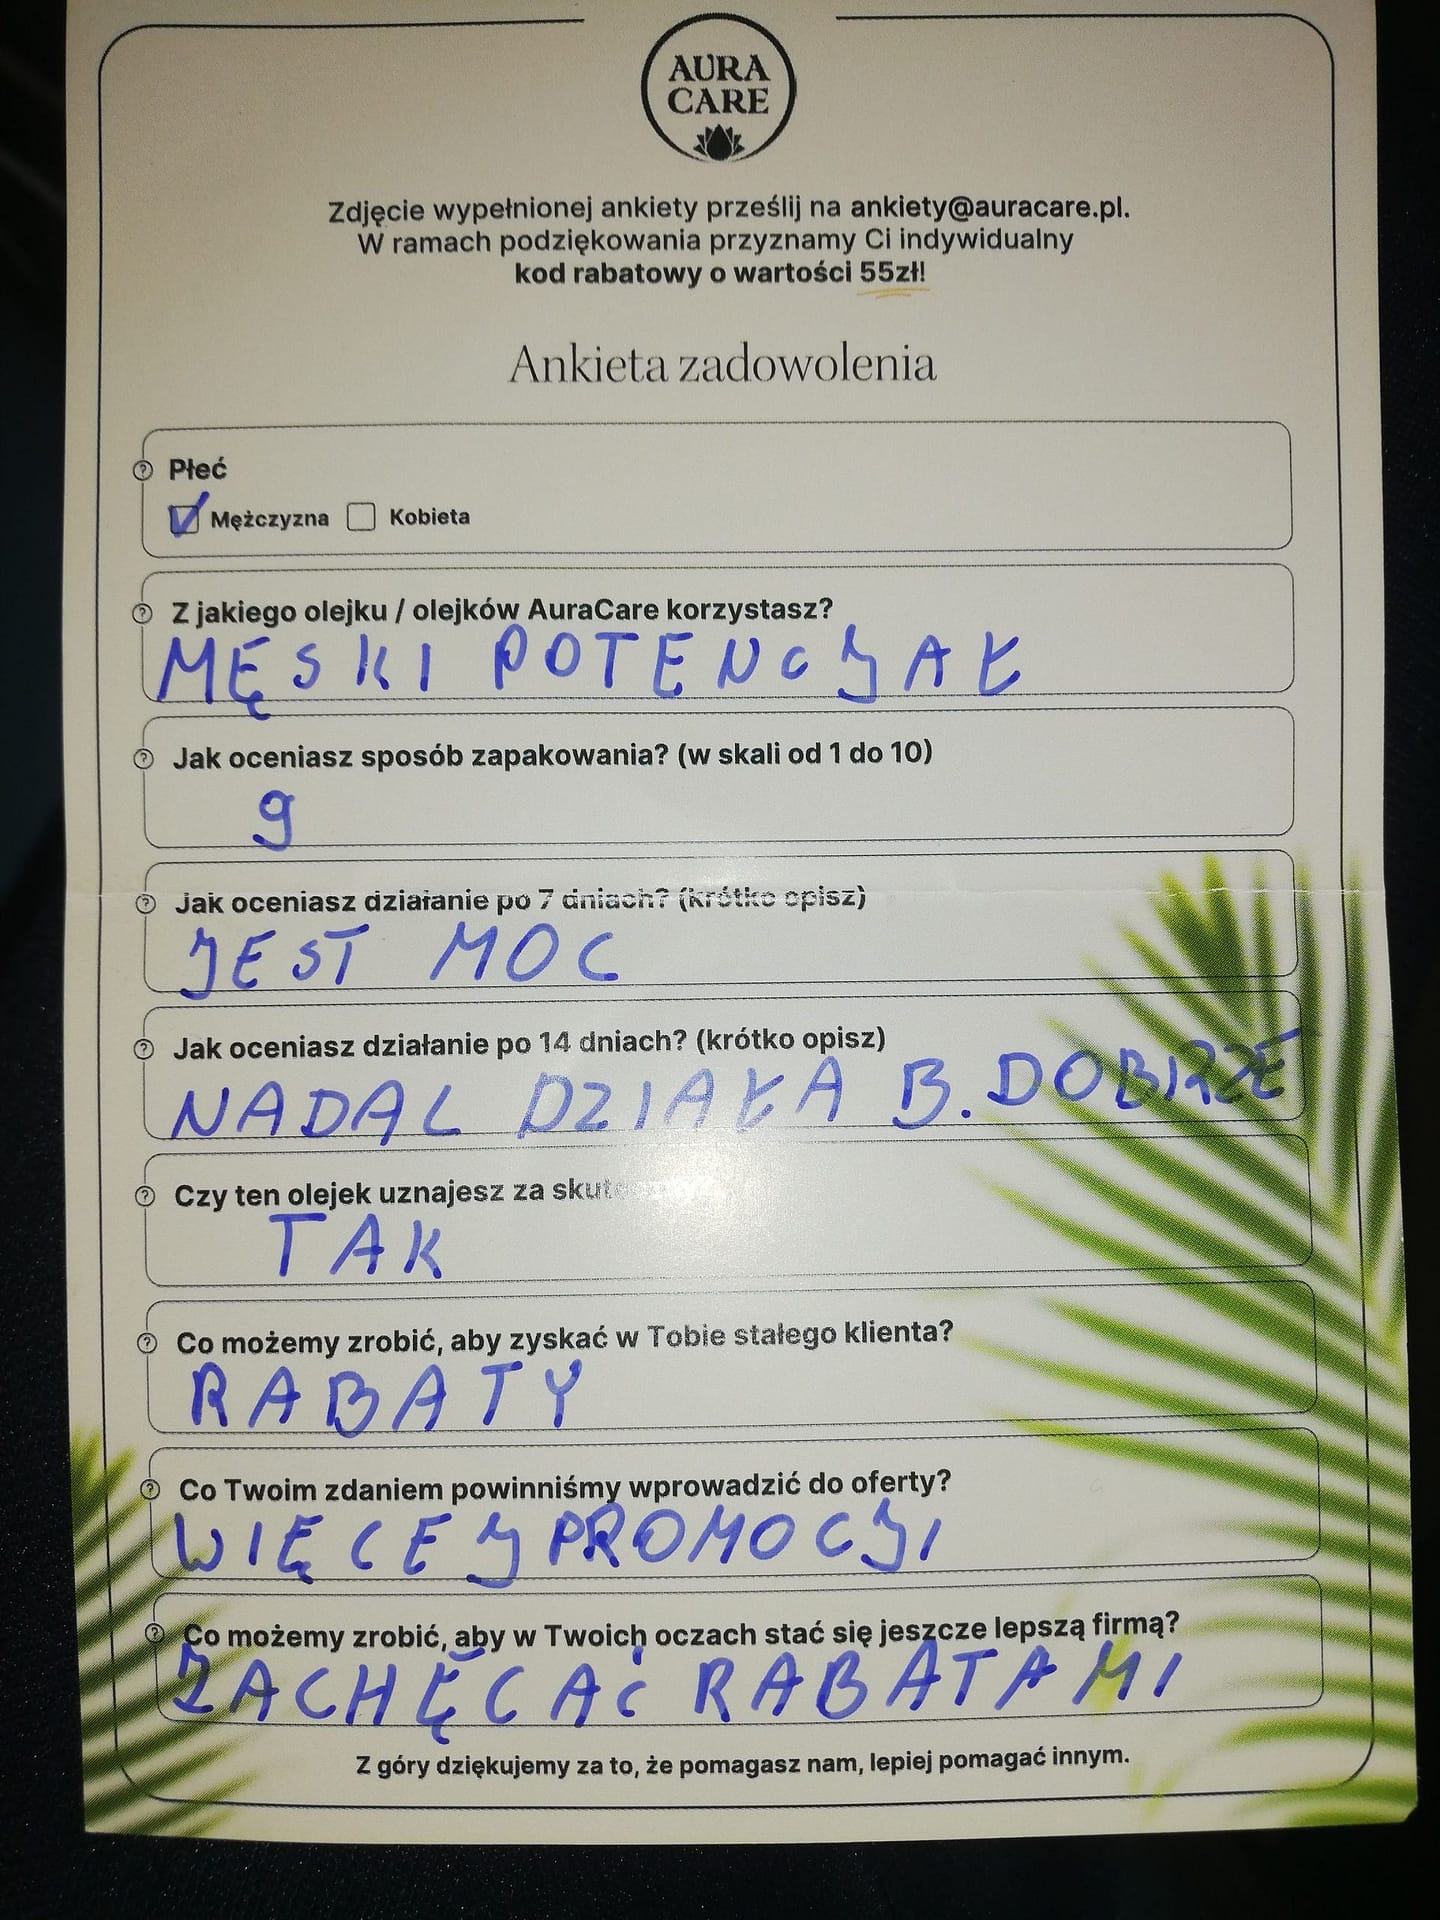 AURA
CARE
Zdjęcie wypełnionej ankiety prześlij na ankiety@auracare.pl.
W ramach podziękowania przyznamy Ci indywidualny
kod rabatowy o wartości 55zł!
Ankieta zadowolenia
Płeć
Mężczyzna Kobieta
Z jakiego olejku / olejków AuraCare korzystasz?
MĘSKI POTENCJAŁ
Jak oceniasz sposób zapakowania? (w skali od 1 do 10)
9
Jak oceniasz działanie po 7 dniach? (krótko opisz)
JEST MOC
Jak oceniasz działanie po 14 dniach? (krótko opisz)
NADAL DZIAŁA B. DOBRZE
Czy ten olejek uznajesz za
TAK
Co możemy zrobić, aby zyskać w Tobie stałego klienta?
RABATY
Co Twoim zdaniem powinniśmy wprowadzić do oferty?
WIĘCEJ PROMOCJI
Co możemy zrobić, aby w Twoich oczach stać się jeszcze lepszą firmą?
ZACHĘCAĆ RABATAMI
Z góry dziękujemy za to, że pomagasz nam, lepiej pomagać innym.